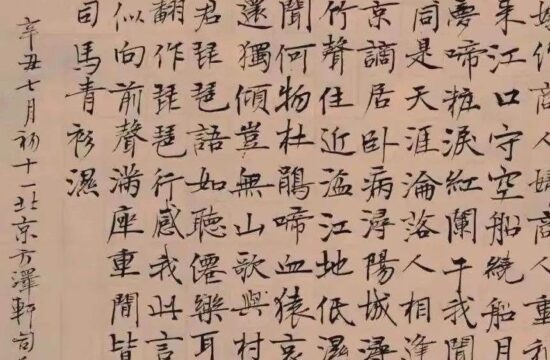 嫁作商人婦商人重利
來江口守空船繞船月
夢啼粧淚紅闌干我聞
同是天涯淪落人相逢
京謫居臥病潯陽城潯
竹聲住近湓江地低濕
聞何物杜鵑啼血猿哀
還獨傾豈無山歌與村
君琵琶語如聽僊樂耳
翻作琵琶行感我此言
似向前聲滿座重聞皆
司馬青衫濕
辛丑七月初十一北京方澤軒